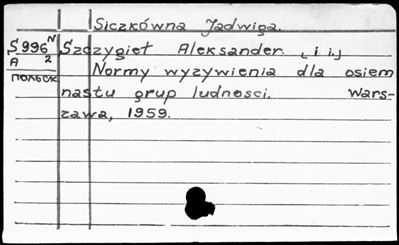 Siczkówna Jadwiga.
S996 N Szczygieł Aleksander [i i.]
A 2
польск Normy wyzywienia dla osiem
nastu grup ludnosci. Wars-
zawa, 1959.